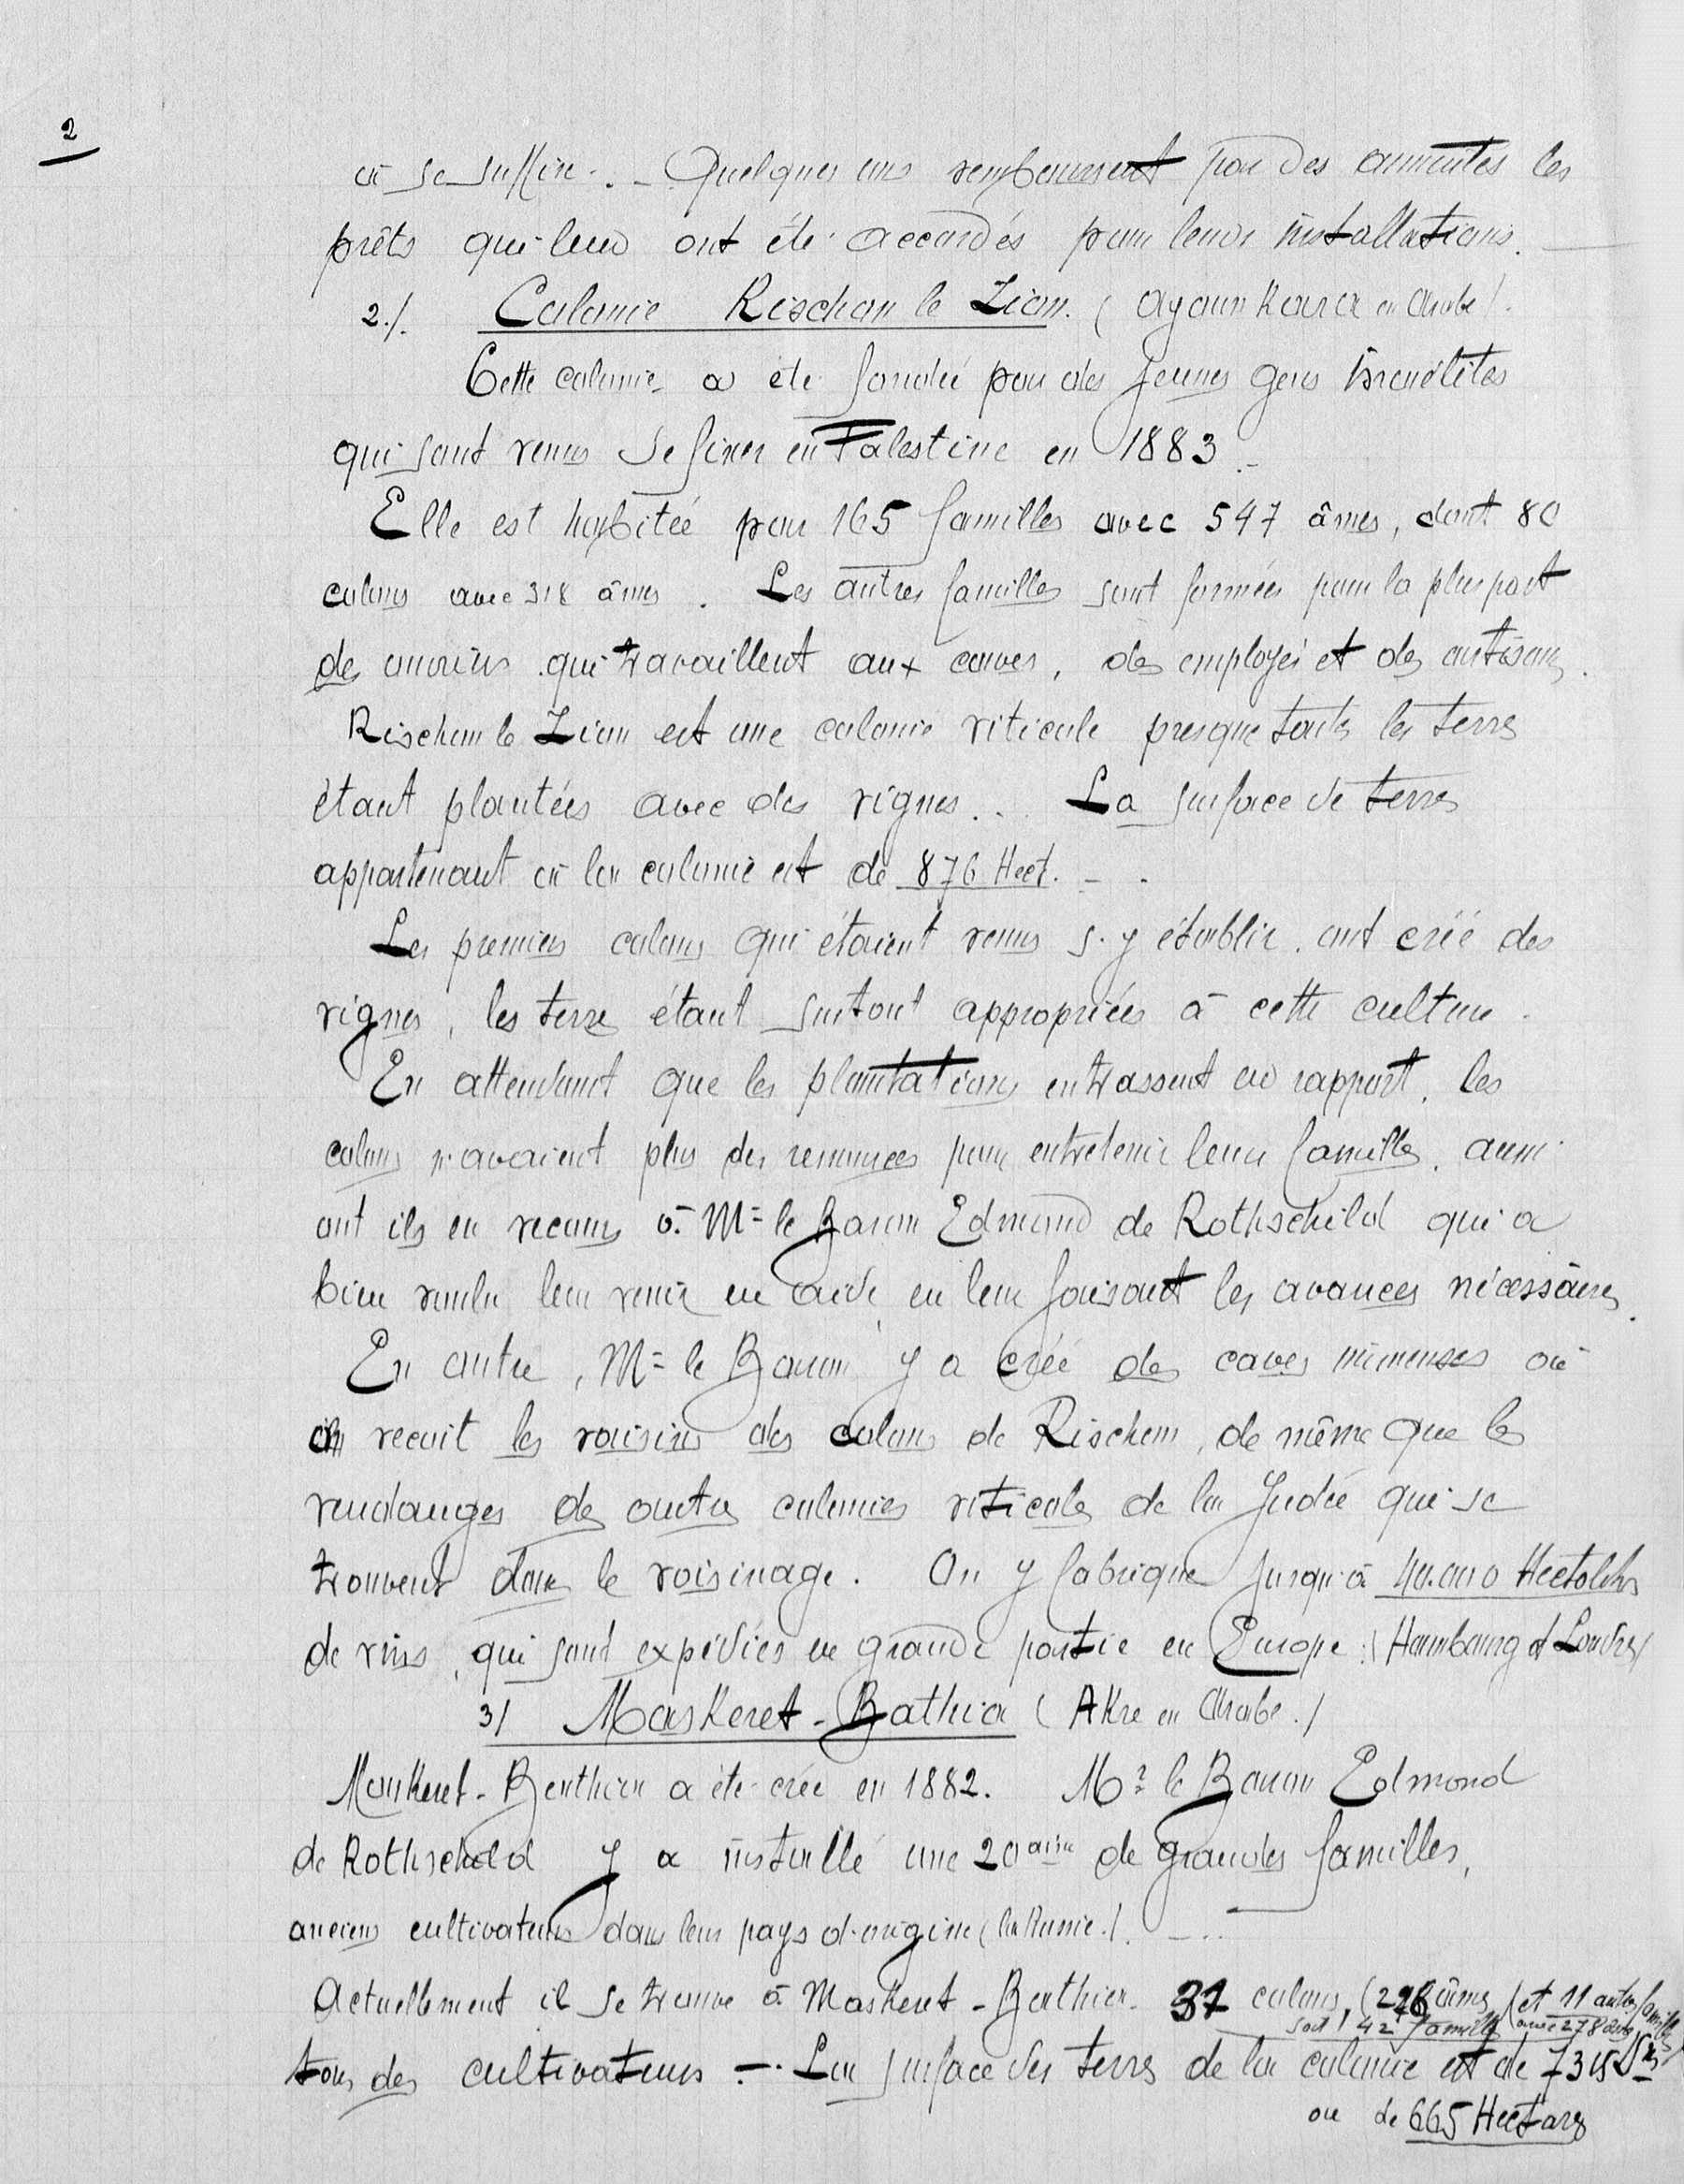 2
à se suffire. - Quelques uns remboursent par des annuités les
prêts qui leur ont été accordés pour leurs installations.
2./. Colonie Rischon le Zion. (Ayoun Kara en Arabe).
Cette colonie a été fondée par des jeunes gens Israélites
qui sont venus se fixer en Palestine en 1883.-
Elle est habitée par 165 familles avec 547 âmes, dont 80
colons avec 318 âmes. Les autres familles sont formées pour la plus part
des ouvriers qui travaillent aux caves, des employés et des artisans.
Rischon le Zion est une colonie viticole presque toutes les terres
étant plantées avec des vignes... La surface de terres
appartenant à la colonie est de 876 Hect. - .
Les premiers colons qui étaient venus s'y établir, ont créé des
vignes, les terres étant surtout appropriées à cette culture.
En attendant que les plantations entrassent en rapport, les
colons n'avaient plus des ressources pour entretenir leur famille, aussi
ont ils eu recours à Mr le Baron Edmond de Rothschild qui a
bien voulu leur venir en aide, en leur faisant les avances nécessaires.
En outre, Mr le Baron y a créé des caves immenses où
on reçoit les raisins des colons de Rischon, de même que les
vendanges des autres colonies viticoles de la Judée qui se
trouvent dans le voisinage. On y fabrique jusqu'à 40.000 Hectolitres
de vins, qui sont expédiés en grande partie en Europe: (Hambourg et Londres)
3/ Maskeret-Bathia (Akre en Arabe.)
Maskeret-Bathia a été créée en 1882. Mr le Baron Edmond
de Rothschild y a installé une 20aine de grandes familles,
anciens cultivateurs dans leur pays d'origine (la Russie.). -..
Actuellement il se trouve à Maskeret-Bathia 31 colons, (216 âmes) et 11 autres familles
soit 42 familles avec 278 âmes
tous des cultivateurs. - La surface des terres de la colonie est de 7315 Dms
ou de 665 Hectares